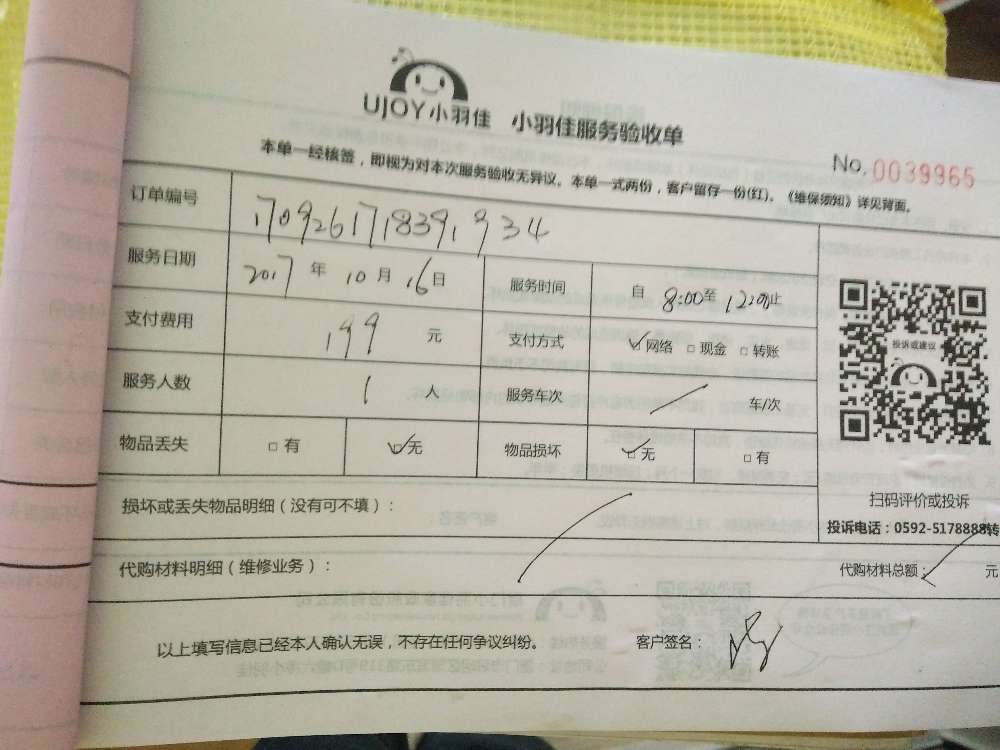 UJOY小羽佳 小羽佳服务验收单
No. 0039965
本单一经核签，即视为对本次服务验收无异议。本单一式两份，客户留存一份(红)。《维保须知》详见背面。
订单编号 1709261718391934
服务日期 2017 年 10 月 16 日 服务时间 自 8:00 至 12:00 止
支付费用 199 元 支付方式 ☑网络 □现金 □转账
投诉或建议
服务人数 1 人 服务车次 / 车/次
物品丢失 □有 ☑无 物品损坏 ☑无 □有
扫码评价或投诉
损坏或丢失物品明细（没有可不填）：
投诉电话：0592-5178888转
代购材料明细（维修业务）： 代购材料总额： 元
以上填写信息已经本人确认无误，不存在任何争议纠纷。 客户签名：